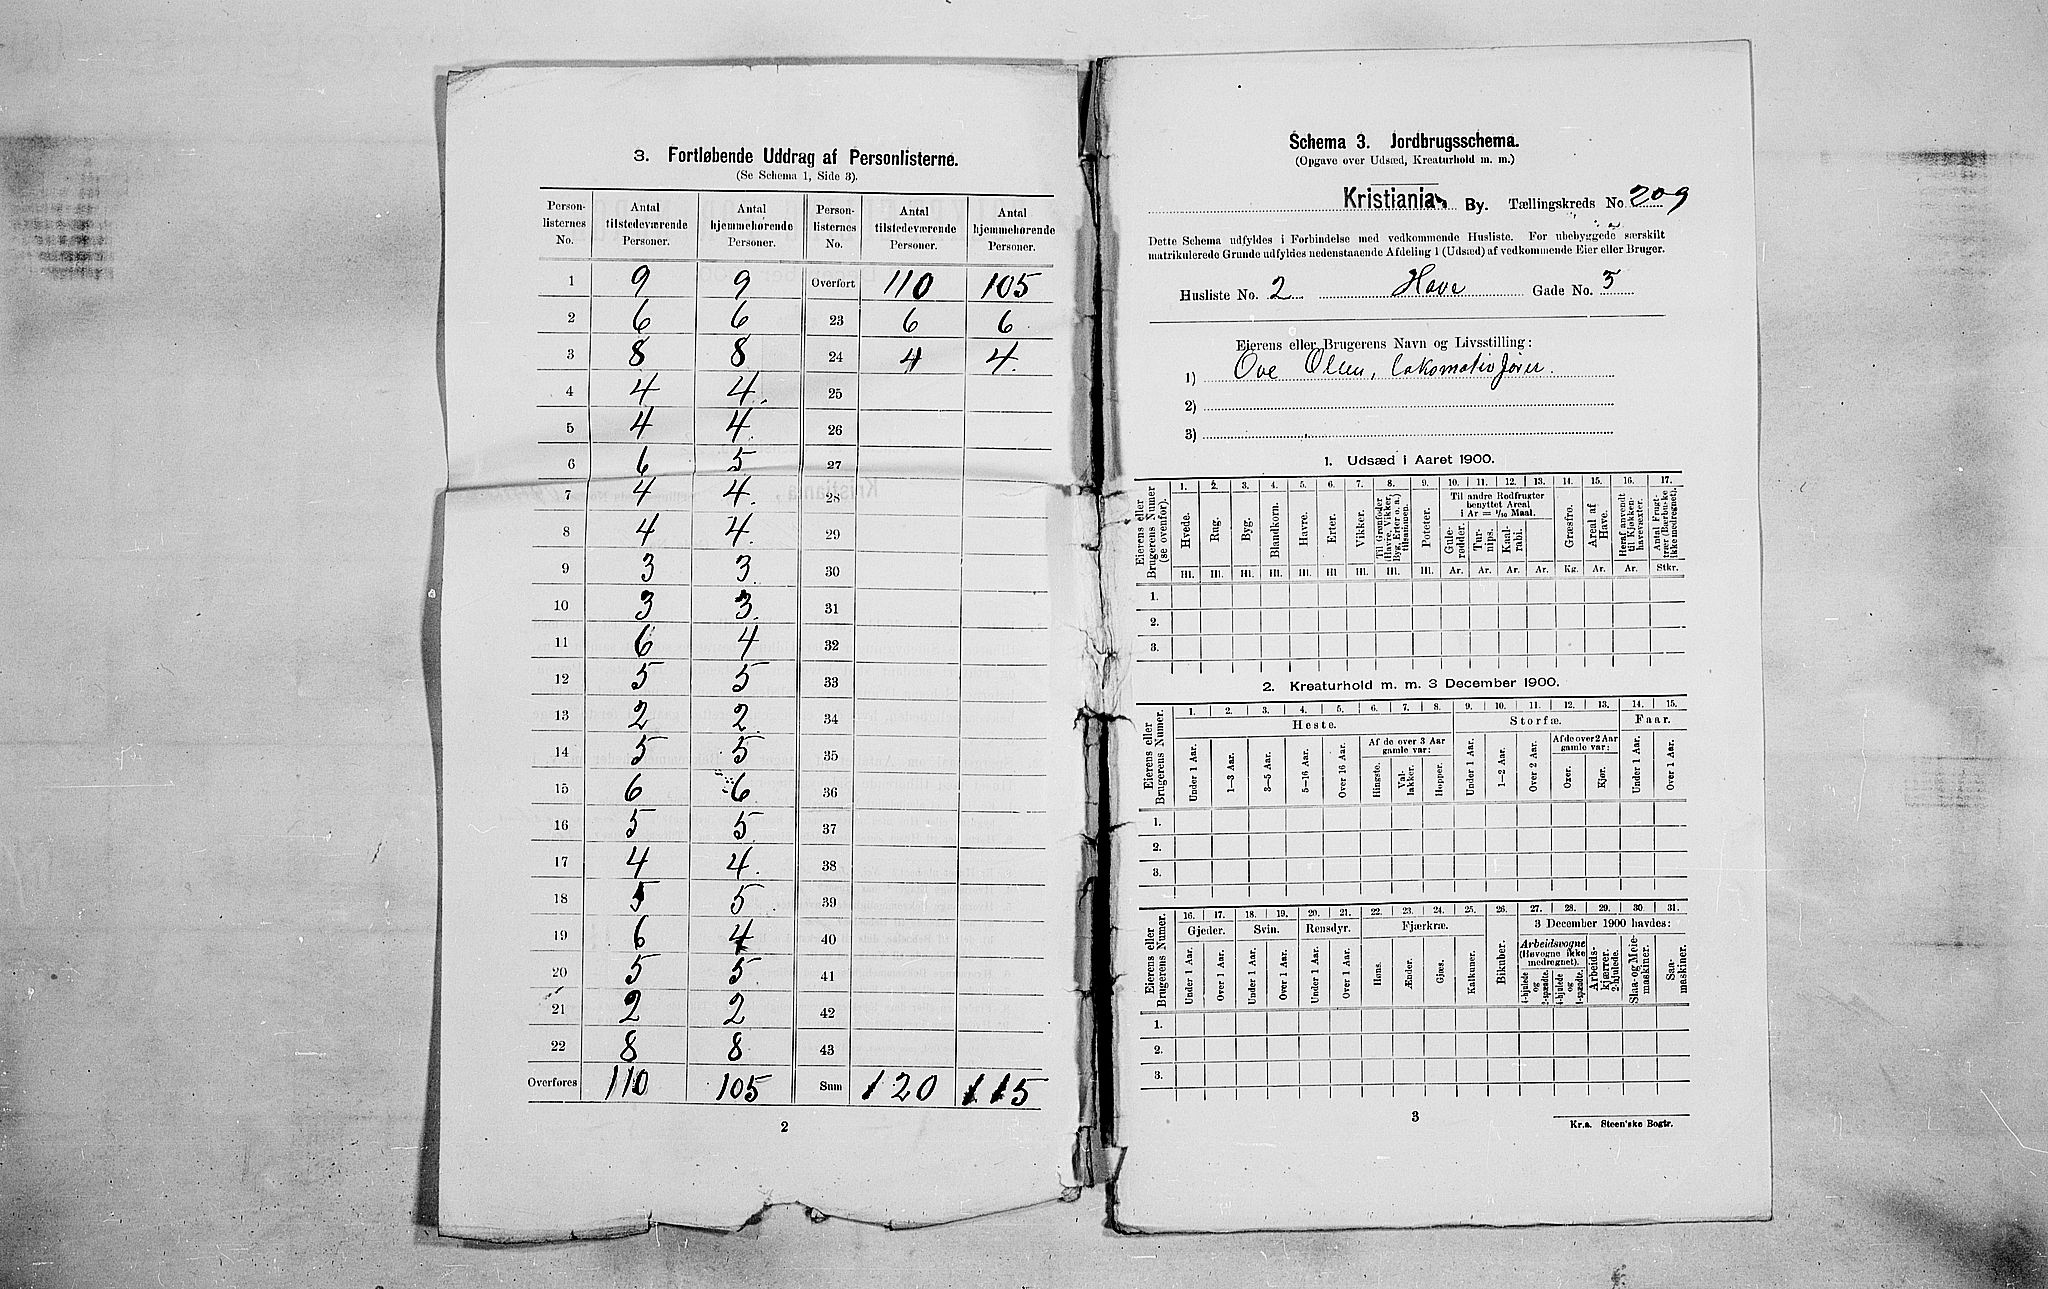 3. Fortløbende Uddrag af Personlisterne.
(Se Schema 1, Side 3).
Person-listernes No. Antal tilstedeværende Personer. Antal hjemmehørende Personer. Person-listernes No. Antal tilstedeværende Personer. Antal hjemmehørende Personer.
1 9 9 Overført 110 105
2 6 6 23 6 6
3 8 8 24 4 4
4 4 4 25
5 4 4 26
6 6 5 27
7 4 4 28
8 4 4 29
9 3 3 30
10 3 3 31
11 6 4 32
12 5 5 33
13 2 2 34
14 5 5 35
15 6 6 36
16 5 5 37
17 4 4 38
18 5 5 39
19 6 4 40
20 5 5 41
21 2 2 42
22 8 8 43
Overføres 110 105 Sum 120 115
2
Schema 3. Jordbrugsschema.
(Opgave over Udsæd, Kreaturhold m. m.)
Kristiania By. Tællingskreds No. 209
Dette Schema udfyldes i Forbindelse med vedkommende Husliste. For ubebyggede særskilt
matrikulerede Grunde udfyldes nedenstaaende Afdeling 1 (Udsæd) af vedkommende Eier eller Bruger.
Husliste No. 2 Have Gade No. 5
Eierens eller Brugerens Navn og Livsstilling:
1) Ove Olsen, lokomotivfører.
2)
3)
1. Udsæd i Aaret 1900.
Eierens eller Brugerens Numer (se ovenfor).
1. 2. 3. 4. 5. 6. 7. 8. 9. 10. 11. 12. 13. 14. 15. 16. 17.
Hvede. Rug. Byg. Blandkorn. Havre. Erter. Vikker. Til Grønfoder (Havre, Vikker, Byg, Erter o. a.) tilsammen. Poteter.
Til andre Rodfrugter benyttet Areal i Ar = 1/10 Maal.
Gule-rødder. Tur-nips. Kaal-rabi. Græsfrø. Areal af Have. Heraf anvendt til Kjøkken-havevæxter. Antal Frugt-trær (Bærbuske ikke medregnet).
Hl. Hl. Hl. Hl. Hl. Hl Hl. Hl. Hl. Ar. Ar. Ar. Ar. Kg. Ar. Ar. Stkr.
1.
2.
3.
2. Kreaturhold m. m. 3 December 1900.
Eierens eller Brugerens Numer.
1. 2. 3. 4. 5. 6. 7. 8. 9. 10. 11. 12. 13. 14. 15.
Heste. Storfæ. Faar.
Af de over 3 Aar gamle var: Af de over 2 Aar gamle var:
Under 1 Aar. 1—3 Aar. 3—5 Aar. 5—16 Aar. Over 16 Aar. Hingste. Val-lakker. Hopper. Under 1 Aar. 1—2 Aar. Over 2 Aar. Oxer. Kjør. Under 1 Aar. Over 1 Aar.
1.
2.
3.
Eierens eller Brugerens Numer.
16. 17. 18. 19. 20. 21. 22. 23. 24. 25. 26. 27. 28. 29. 30. 31.
Gjeder. Svin. Rensdyr. Fjærkræ. Bikuber. 3 December 1900 havdes:
Under 1 Aar. Over 1 Aar. Under 1 Aar. Over 1 Aar. Under 1 Aar. Over 1 Aar. Høns. Ænder. Gjæs. Kalkuner.
Arbeidsvogne (Høvogne ikke medregnet).
4-hjulede og 2-spændte. 4-hjulede og 1-spændte. Arbeids-kjærrer, 2-hjulede. Slaa- og Meie-maskiner. Saa-maskiner.
1.
2.
3.
3
Kr.a. Steen'ske Bogtr.